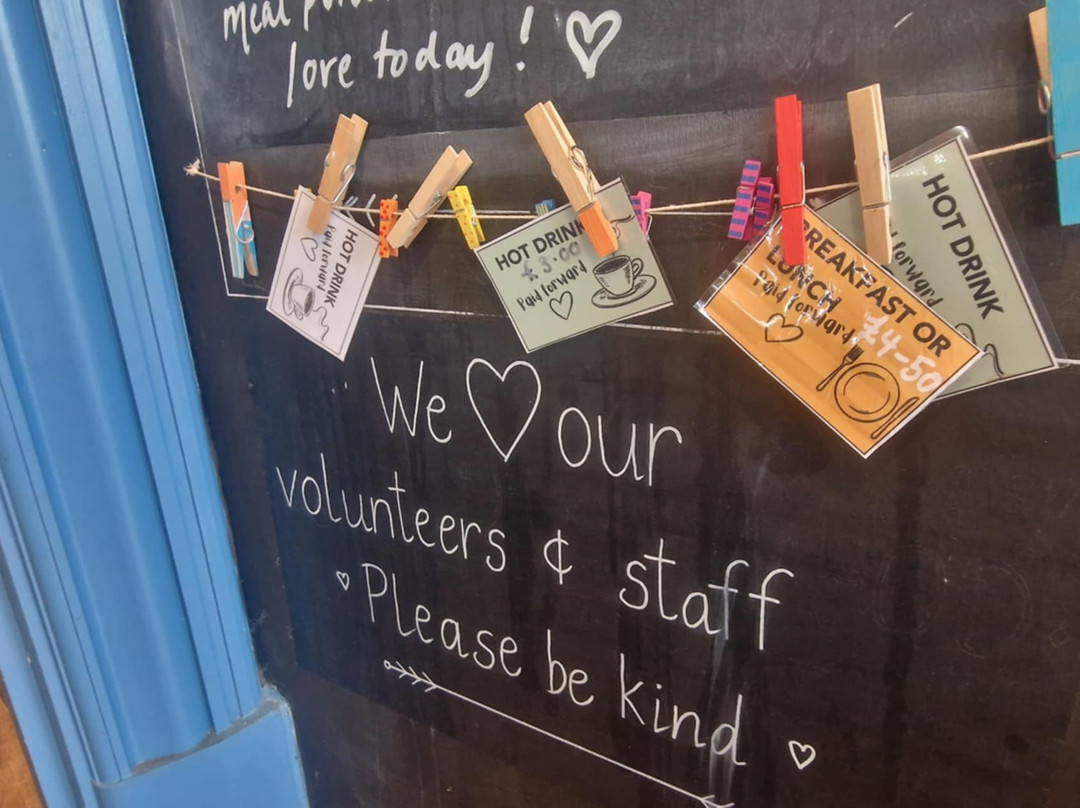 love today!
HOT DRINK
Paid forward
HOT DRINK
£3.00
Paid forward
BREAKFAST OR
LUNCH
Paid forward
£4-50
HOT DRINK
forward
We our
volunteers & staff
Please be kind